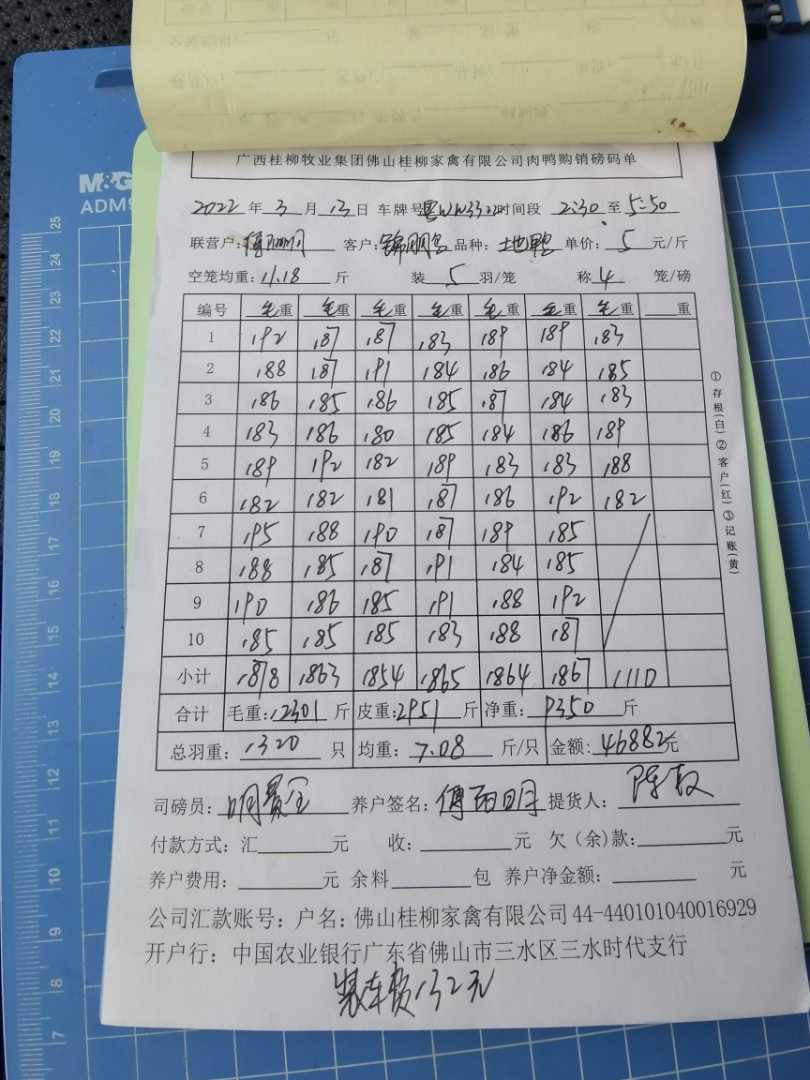 M&G
ADM
广西桂柳牧业集团佛山桂柳家禽有限公司肉鸭购销磅码单
2022年3月13日 车牌号 时间段 2:30至5:50
联营户: 客户:锦朋 品种:土鸭 单价:5元/斤
空笼均重:11.18斤 装5羽/笼 称4笼/磅
编号 毛重 毛重 毛重 毛重 毛重 毛重 毛重 重
1 192 187 187 183 189 189 183
2 188 187 191 184 186 184 185
3 186 185 186 185 187 184 183
4 183 186 180 185 184 186 189
5 189 192 182 189 183 183 188
6 182 182 181 187 186 192 182
7 195 188 190 187 189 185
8 188 185 187 191 184 185
9 190 186 185 191 188 192
10 185 185 185 183 188 187
小计 1878 1863 1854 1865 1864 1867 1110
合计 毛重:12301斤 皮重:2951斤 净重:9350斤
总羽重:1320只 均重:7.08斤/只 金额:46882元
司磅员: 养户签名:傅丽明 提货人:陈
付款方式:汇 元 收: 元 欠(余)款: 元
养户费用: 元 余料 包 养户净金额: 元
公司汇款账号:户名:佛山桂柳家禽有限公司44-440101040016929
开户行:中国农业银行广东省佛山市三水区三水时代支行
装车费132元
①存根(白)②客户(红)③记账(黄)
25
24
23
22
21
20
19
18
17
16
15
14
13
12
11
10
9
8
7